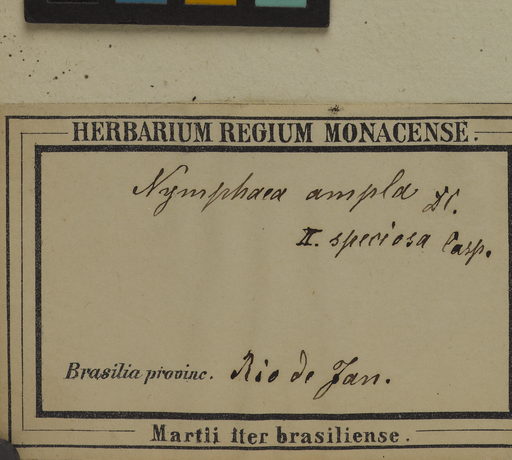 HERBARIUM REGIUM MONACENSE.
Nymphaea ampla DC.
II. speciosa Casp.
Brasilia provinc. Rio de Jan.
Martii iter brasiliense.